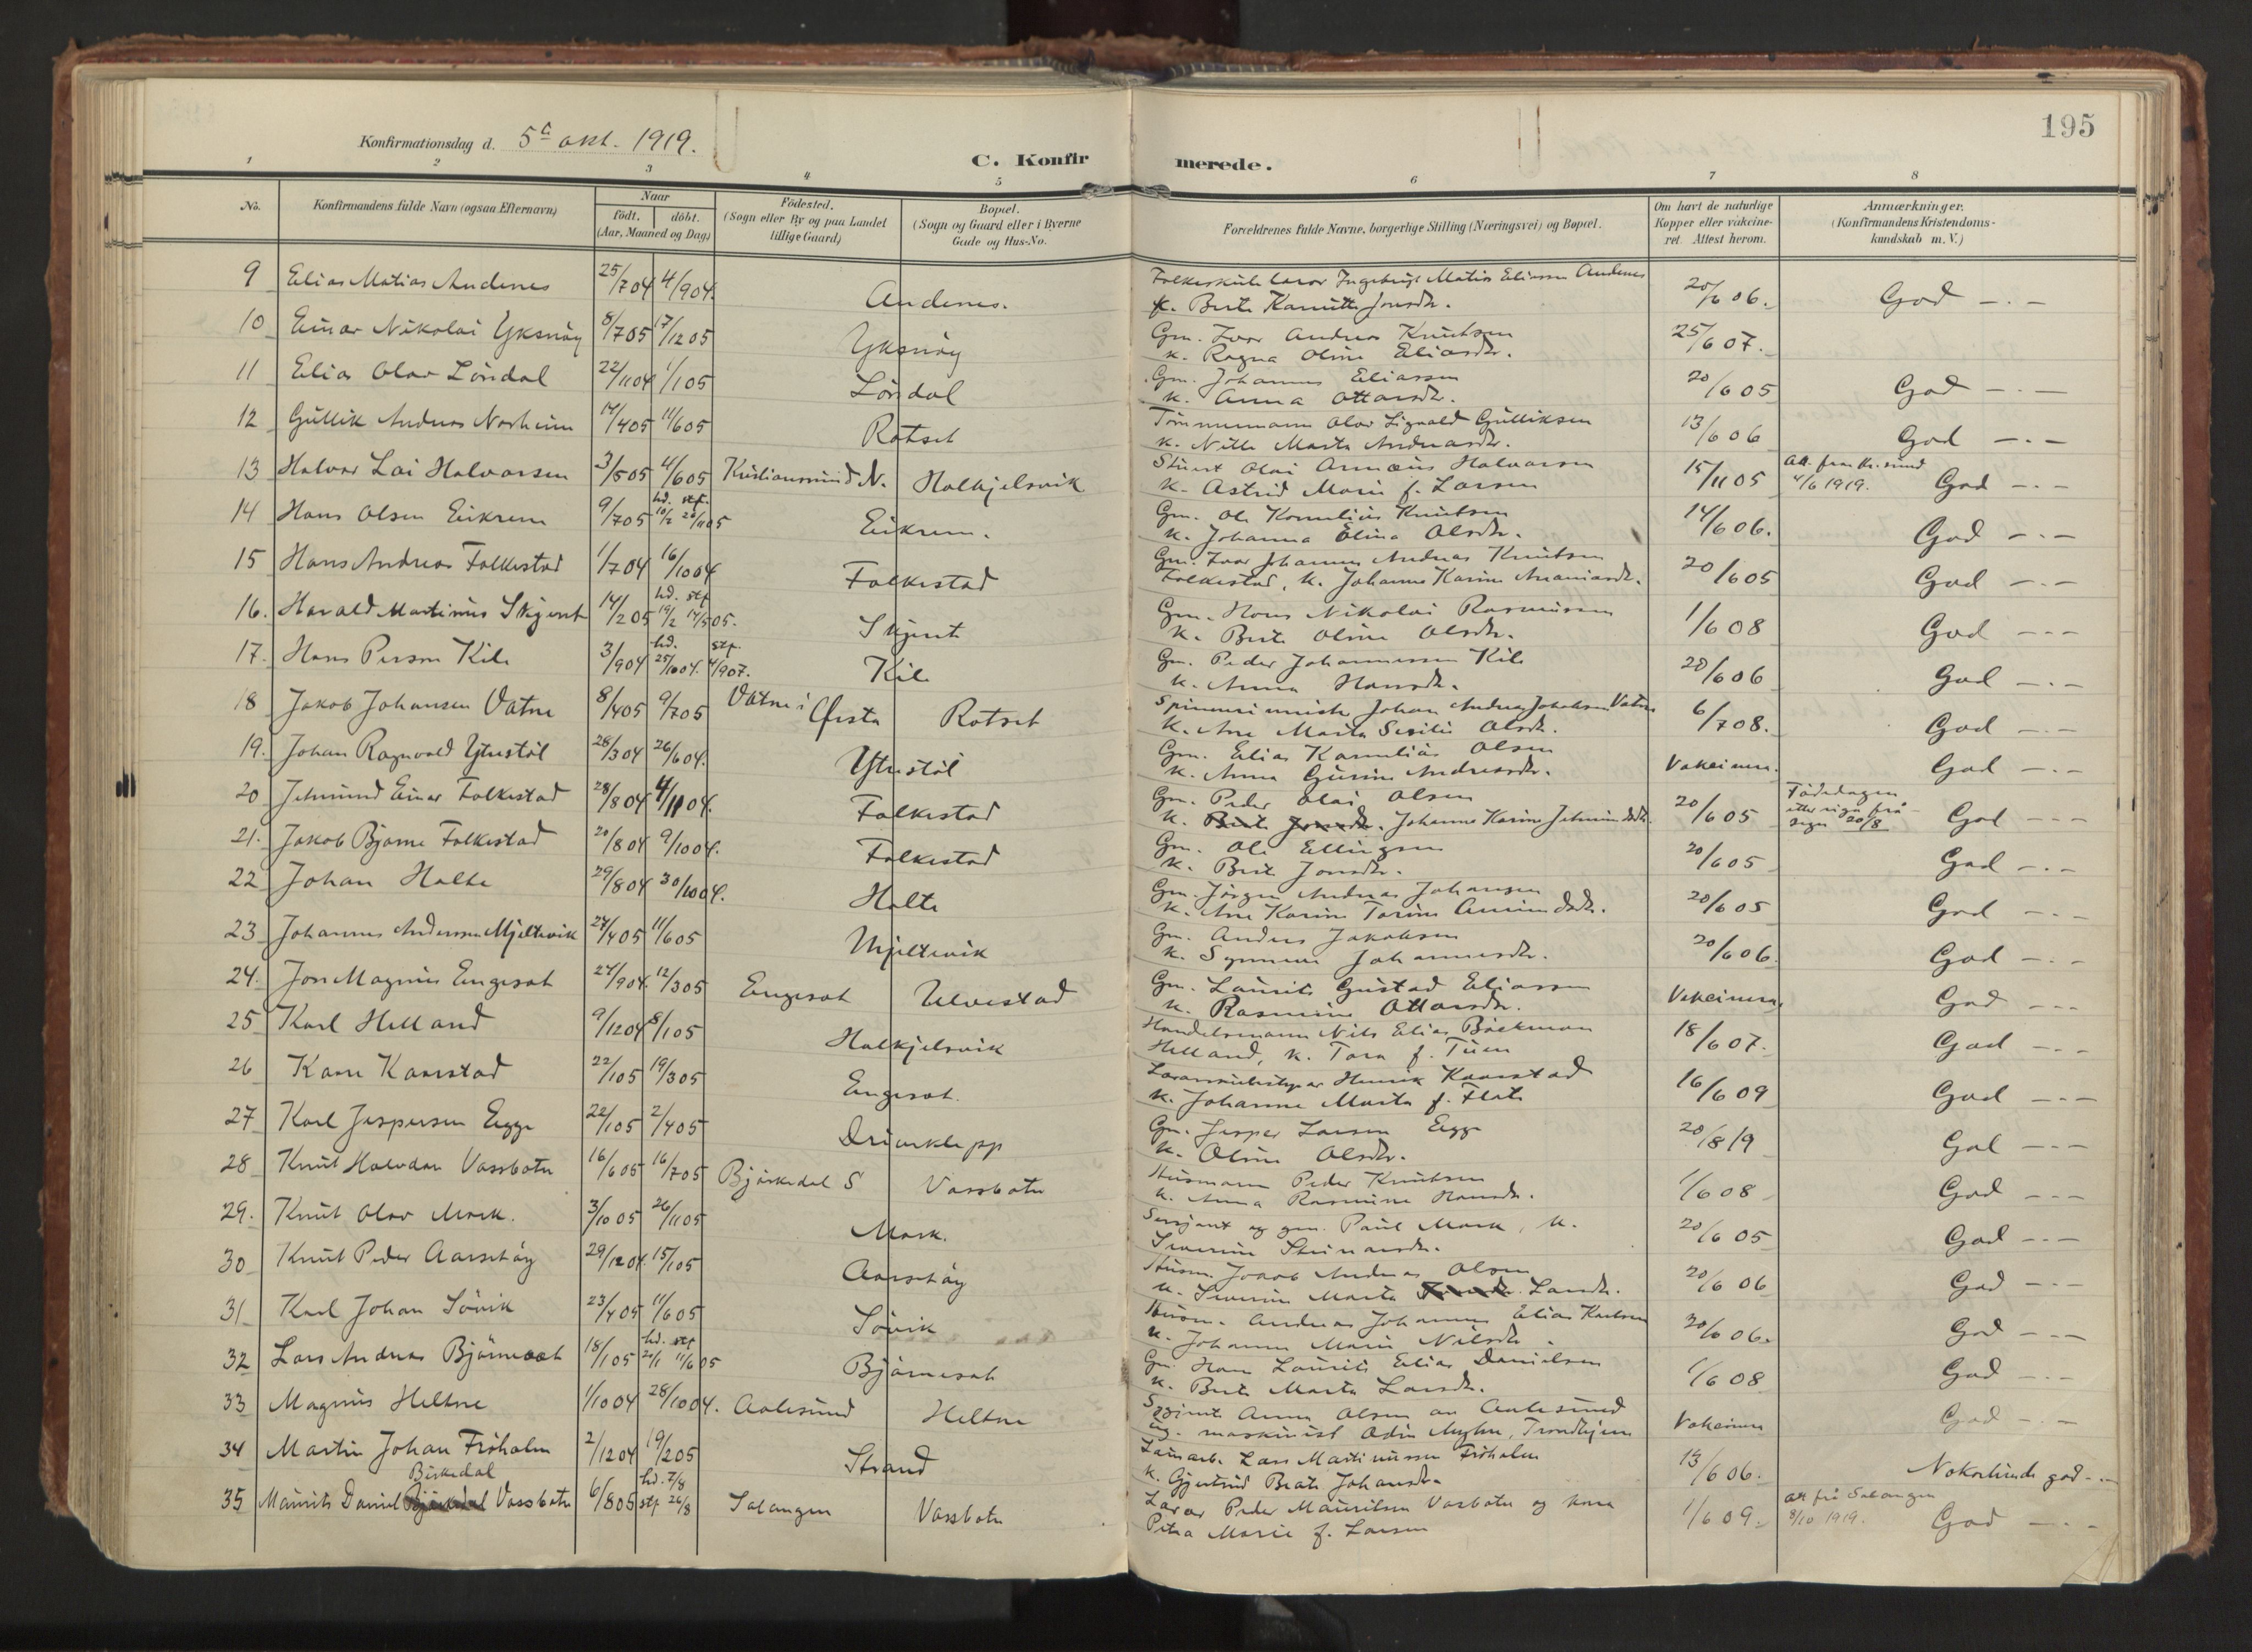 195
Konfirmationsdag d. 5te okt. 1919.
C. Konfirmerede.
1 2 3 4 5 6 7 8
No.
Konfirmandens fulde Navn (ogsaa Efternavn)
Naar
født. døbt.
(Aar, Maaned og Dag)
Födested.
(Sogn eller By og paa Landet
tillige Gaard)
Bopæl.
(Sogn og Gaard eller i Byerne
Gade og Hus-No.
Forældrenes fulde Navne, borgerlige Stilling (Næringsvei) og Bopæl.
Om havt de naturlige
Kopper eller vakcine-
ret. Attest herom.
Anmærkninger.
(Konfirmandens Kristendoms-
kundskab m. V.)
9 Elias Matias Andenes 25/7 04 4/9 04. Andenes. Folkeskulelærar Ingebrigt Matias Eliassen Andenes 20/6 06. God -.-
k. Berte Kamitta Jonsdtr.
10 Einar Nikolai Yksnöy 8/7 05 17/12 05 Yksnöy Gm. Ivar Andreas Knutsen 25/6 07.
k. Ragna Oline Eliasdtr.
11 Elias Olav Löndal 22/11 04 1/1 05 Löndal Gm. Johannes Eliassen 20/6 05 God -.-
k. Anna Ottarsdtr.
12 Gullik Andreas Norheim 14/4 05 11/6 05 Rotset Tömmermann Olav Sigvald Gulliksen 13/6 06 God -.-
k. Nille Marta Andreasdtr.
13 Halvar Lai Halvorsen 3/5 05 4/6 05 Kristiansund N. Halkjelsvik Stuert Olai Annæus Halvorsen 15/11 05 Att. fraa Kr.sund
4/6 1919. God -.-
k. Astrid Marie f. Larsen
14 Hans Olsen Eikrem 9/7 05 hd. stf. 10/7 26/11 05 Eikrem. Gm. Ole Kornelius Knutsen 14/6 06. God -.-
k. Johanna Elina Olsdtr.
15 Hans Andreas Folkestad 1/7 04 16/10 04 Folkestad Gm. Ivar Johannes Andreas Knutsen 20/6 05 God -.-
Folkestad, k. Johanne Karine Ananiasdtr.
16. Harald Martinius Skjerst 14/2 05 hd. stf 19/2 14/5 05. Gm. Hans Nikolai Rasmussen 1/6 08 God ---
k. Berte Oline Olsdtr.
17. Hans Persen Kile 3/9 04 hd. stf. 25/10 04. 4/9 07. Kile Gm. Peder Johannessen Kile 20/6 06 God -.-
k. Anna Hansdtr.
18 Jakob Johansen Vatne 8/4 05 9/7 05 Vatne i Örsta Rotset Spinnerimeister Johan Andreas Jakobsen Vatne 6/7 08. God -.-
k. Ane Marta Sesilie Olsdtr.
19. Johan Ragnvald Ytrestöl 28/3 04 26/6 04. Ytrestöl Gm. Elias Kornelius Olsen Vakcinera. God -.-
k. Anna Gurine Andreasdtr.
20 Jetmund Einar Folkestad 28/8 04 4/11 04. Folkestad Gm. Peder Olai Olsen 20/6 05 Födedagen
etter eige frå-
segn 20/8 God ---
k. Johanne Karine Jetmundsdtr.
21. Jakob Bjarne Folkestad 20/8 04 9/10 04. Folkestad Gm. Ole Ellingsen 20/6 05 God -.-
k. Berte Jonsdtr.
22 Johan Holte 29/8 04 30/10 04. Holte Gm. Jörgen Andreas Johansen 20/6 05 God -.-
k. Ane Karine Torine Amundsdtr.
23 Johannes Anderssen Mjeltevik 24/4 05 11/6 05 Mjeltevik Gm. Anders Jakobsen 20/6 06. God -.-
k. Synneve Johannesdtr.
24. Jon Magnus Engeset 27/9 04. 12/3 05 Engeset Ulvestad Gm. Laurits Gustad Eliassen Vakcinera God ---
k. Rasmine Ottarsdtr.
25 Karl Helland 9/12 04 8/1 05 Halkjelsvik Handelsmann Nils Elias Böckman 18/6 07. God -.-
Helland, k. Tora f. Tuen
26 Kaare Kaarstad 22/1 05 19/3 05 Engeset. Lærarskulestyrar Henrik Kaarstad 16/6 09 God ---
k. Johanne Marta f. Flote
27 Karl Jespersen Egge 22/1 05 2/4 05 Driveklepp Gm. Jesper Larsen Egge 20/8 19 God -.-
k. Oline Olsdtr.
28 Knut Halvdan Vassbotn 16/6 05 16/7 05 Björkedal S Vassbotn Husmann Peder Knutsen 1/6 08 God ---
k. Anna Rasmine Hansdtr.
29. Knut Olav Mork. 3/10 05 26/11 05 Mork. Sersjant og gm. Paul Mork, k. 20/6 05 God -.-
Severine Steinarsdtr.
30 Knut Peder Aarsetöy 29/12 04. 15/1 05 Aarsetöy Husm. Jakob Andreas Olsen 20/6 06 God -.-
k. Severine Marta Larsdtr.
31 Karl Johan Sövik 23/4 05 11/6 05 Sövik Husm. Andreas Johannes Elias Karlsen 20/6 06. God -.-
k. Johanne Marie Nilsdtr.
32 Lars Andreas Björneset 18/1 05 hd. stf 21/1 11/6 05 Björneset Gm. Hans Laurits Elias Danielsen 1/6 08 God -.-
k. Berte Marta Larsdtr.
33 Magnus Heltne 1/10 04 28/10 04. Aalesund Heltne Ugjimt Anna Olsen av Aalesund Vakcinera God -.-
ug. maskinist Odin Myhre, Trondhjem
34 Martin Johan Fröholm 2/12 04 19/2 05 Strand Laurarb. Lars Martinussen Fröholm 13/6 06. Nokorlunde god -.-
k. Gjertrud Beate Johansdtr.
Birkedal
35 Maurits Daniel Vassbotn 6/8 05 hd. 7/8 stf 26/8 Salangen Vassbotn Lærar Peder Mauritsen Vasbotn og kona 1/6 09. Att frå Salangen
3/10 1919. God -.-
Petra Marie f. Larsen